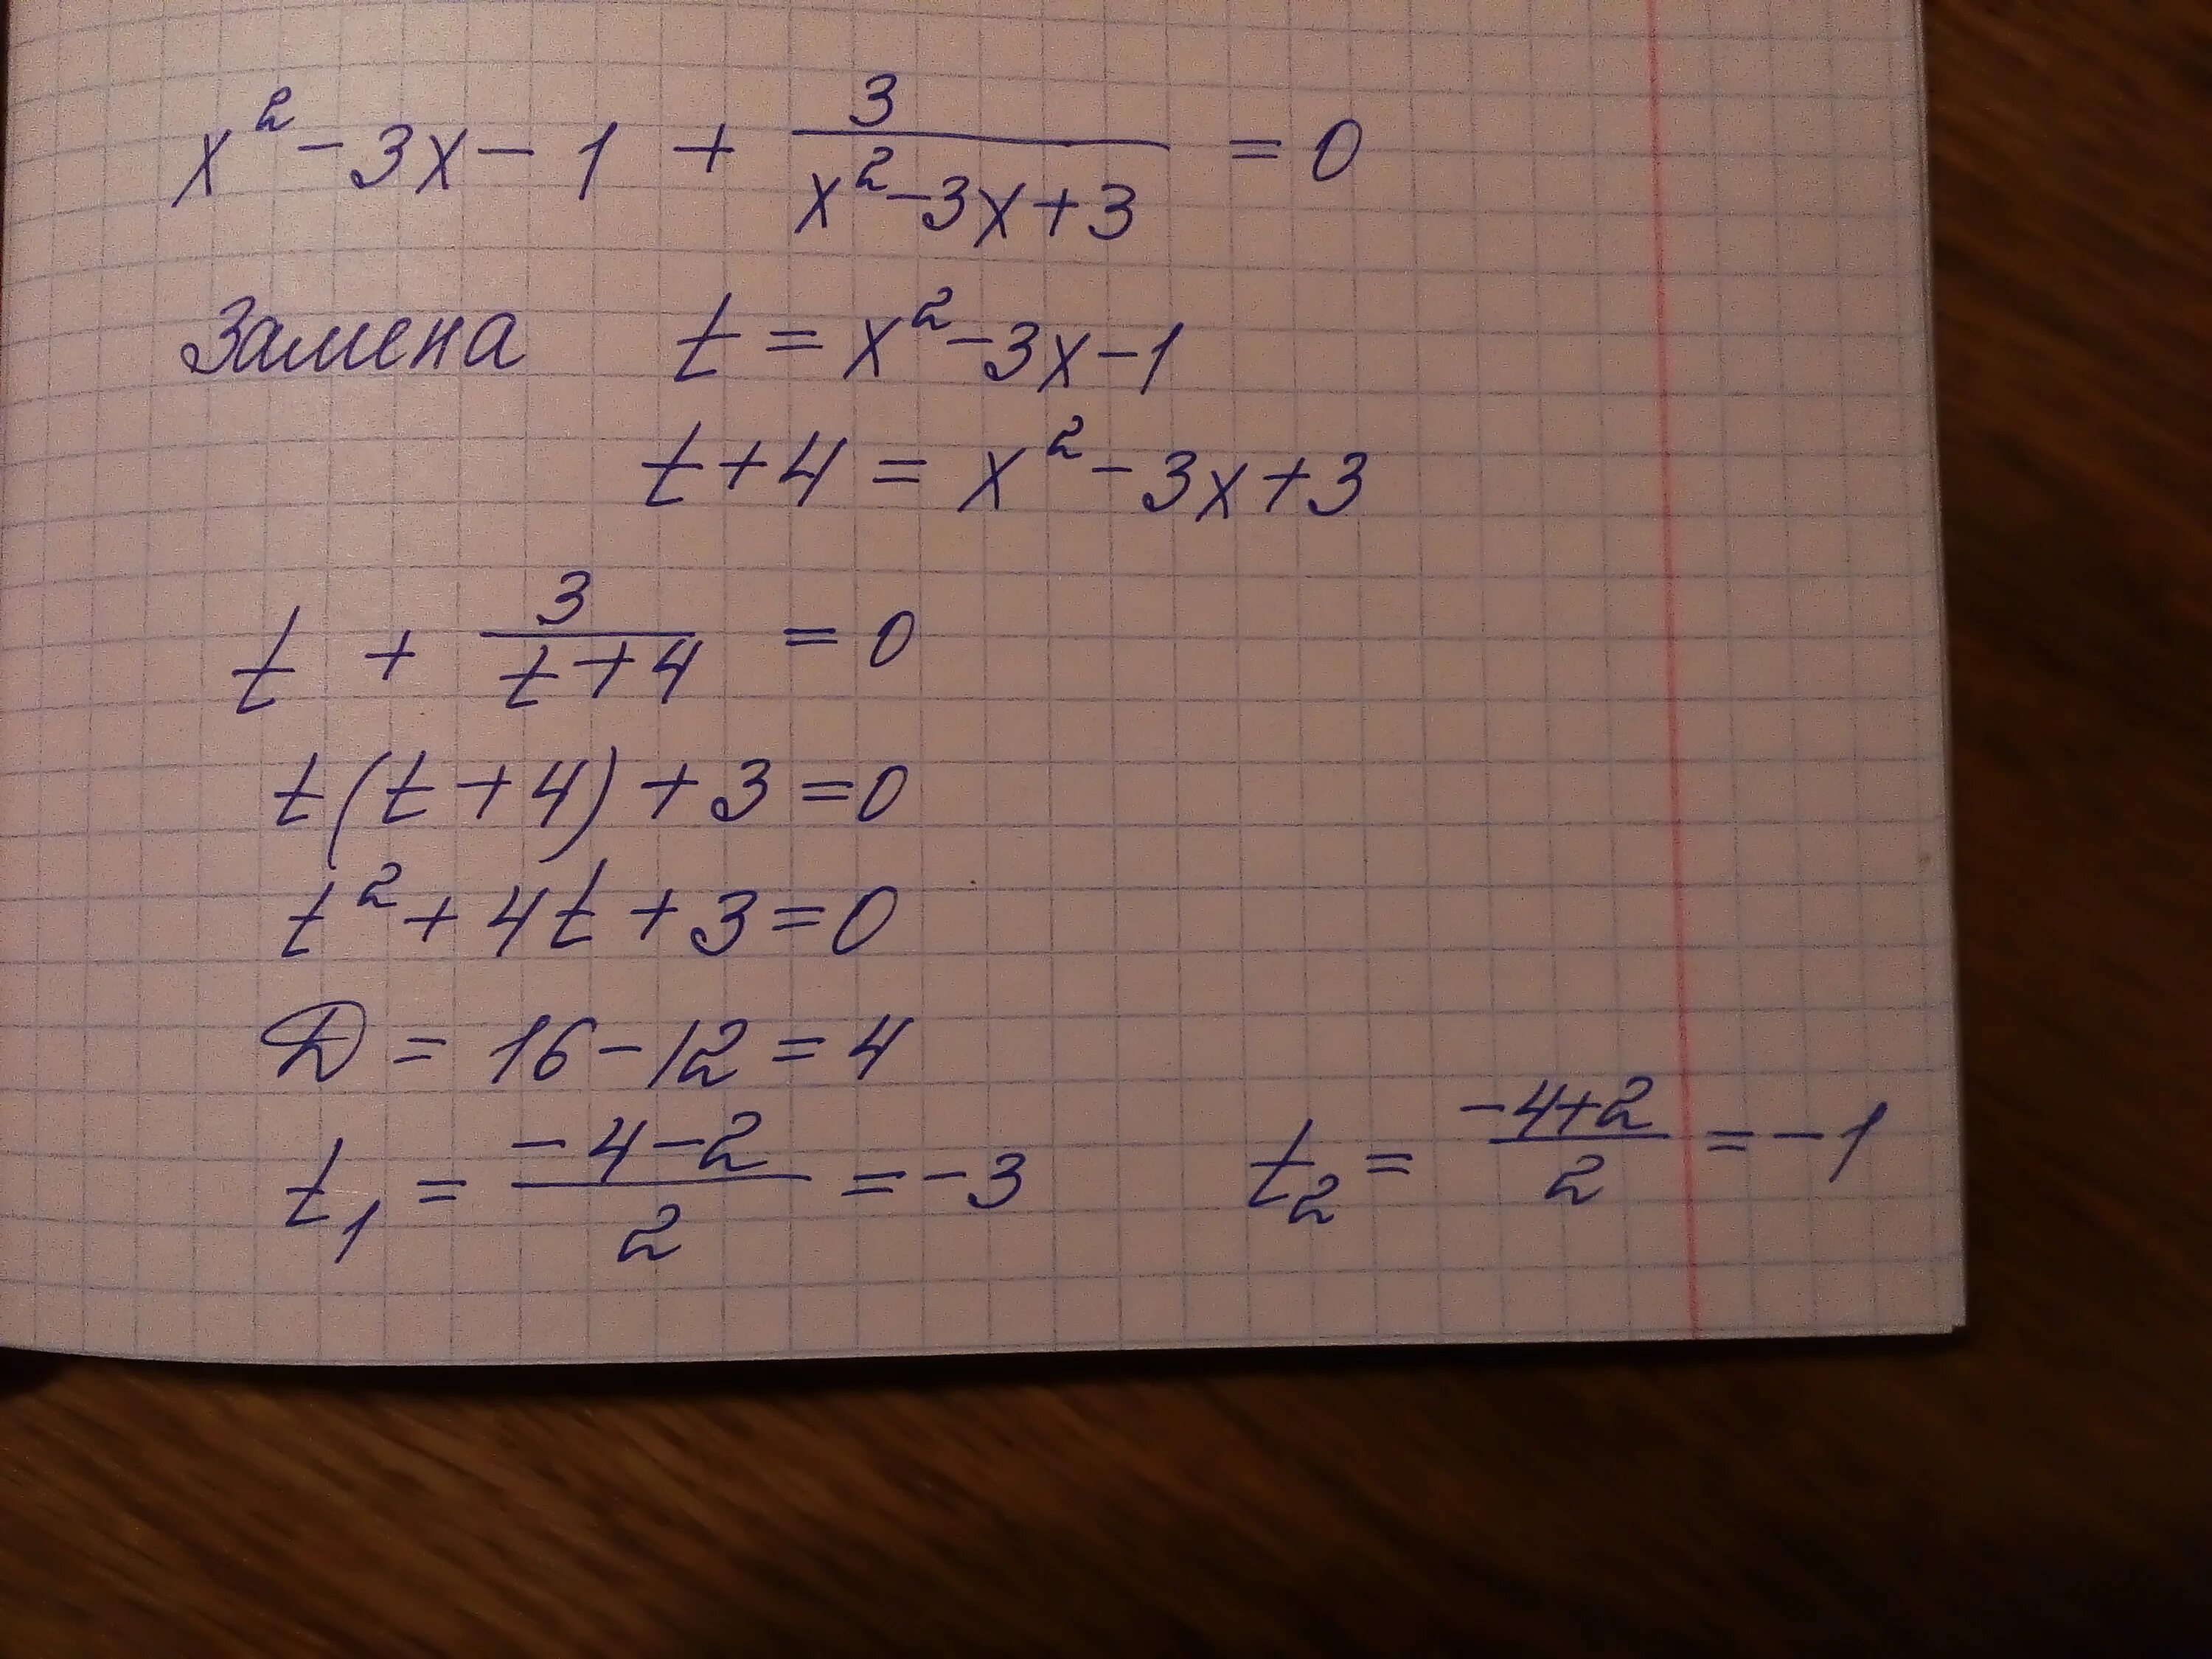 x² - 3x - 1 + 3/(x² - 3x + 3) = 0
Замена t = x² - 3x - 1
t + 4 = x² - 3x + 3
t + 3/(t + 4) = 0
t(t + 4) + 3 = 0
t² + 4t + 3 = 0
D = 16 - 12 = 4
t₁ = (-4 - 2)/2 = -3 t₂ = (-4 + 2)/2 = -1